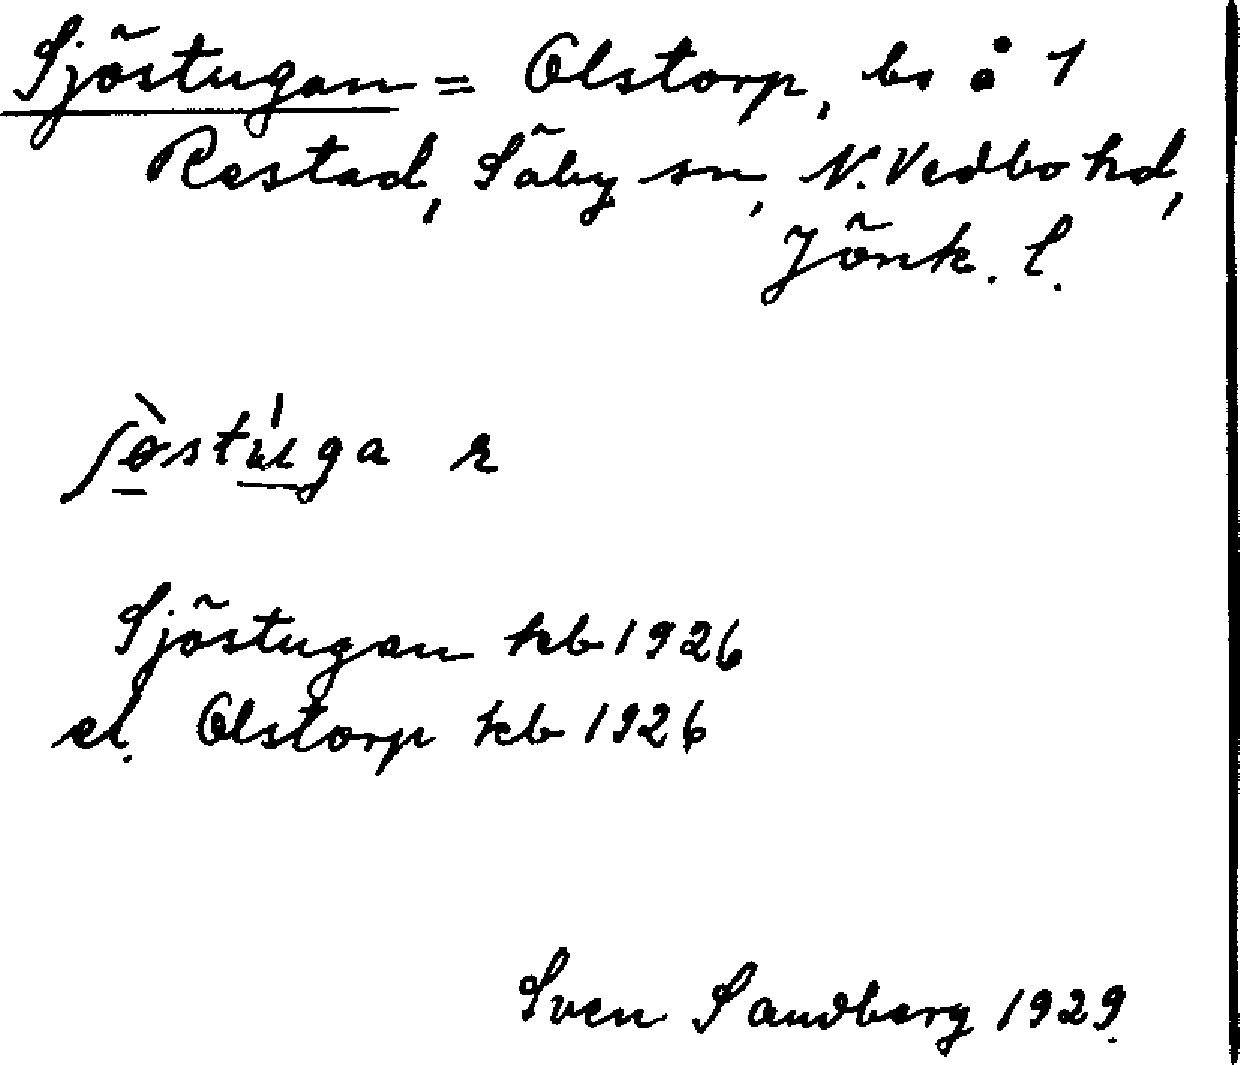 Sjöstugan = Olstorp, bs å 1
Restad, Säby sn, N. Vedbo hd,
Jönk. l.
ʃö̀stúga r
Sjöstugan kb 1926
el. Olstorp kb 1926
Sven Sandberg 1929.